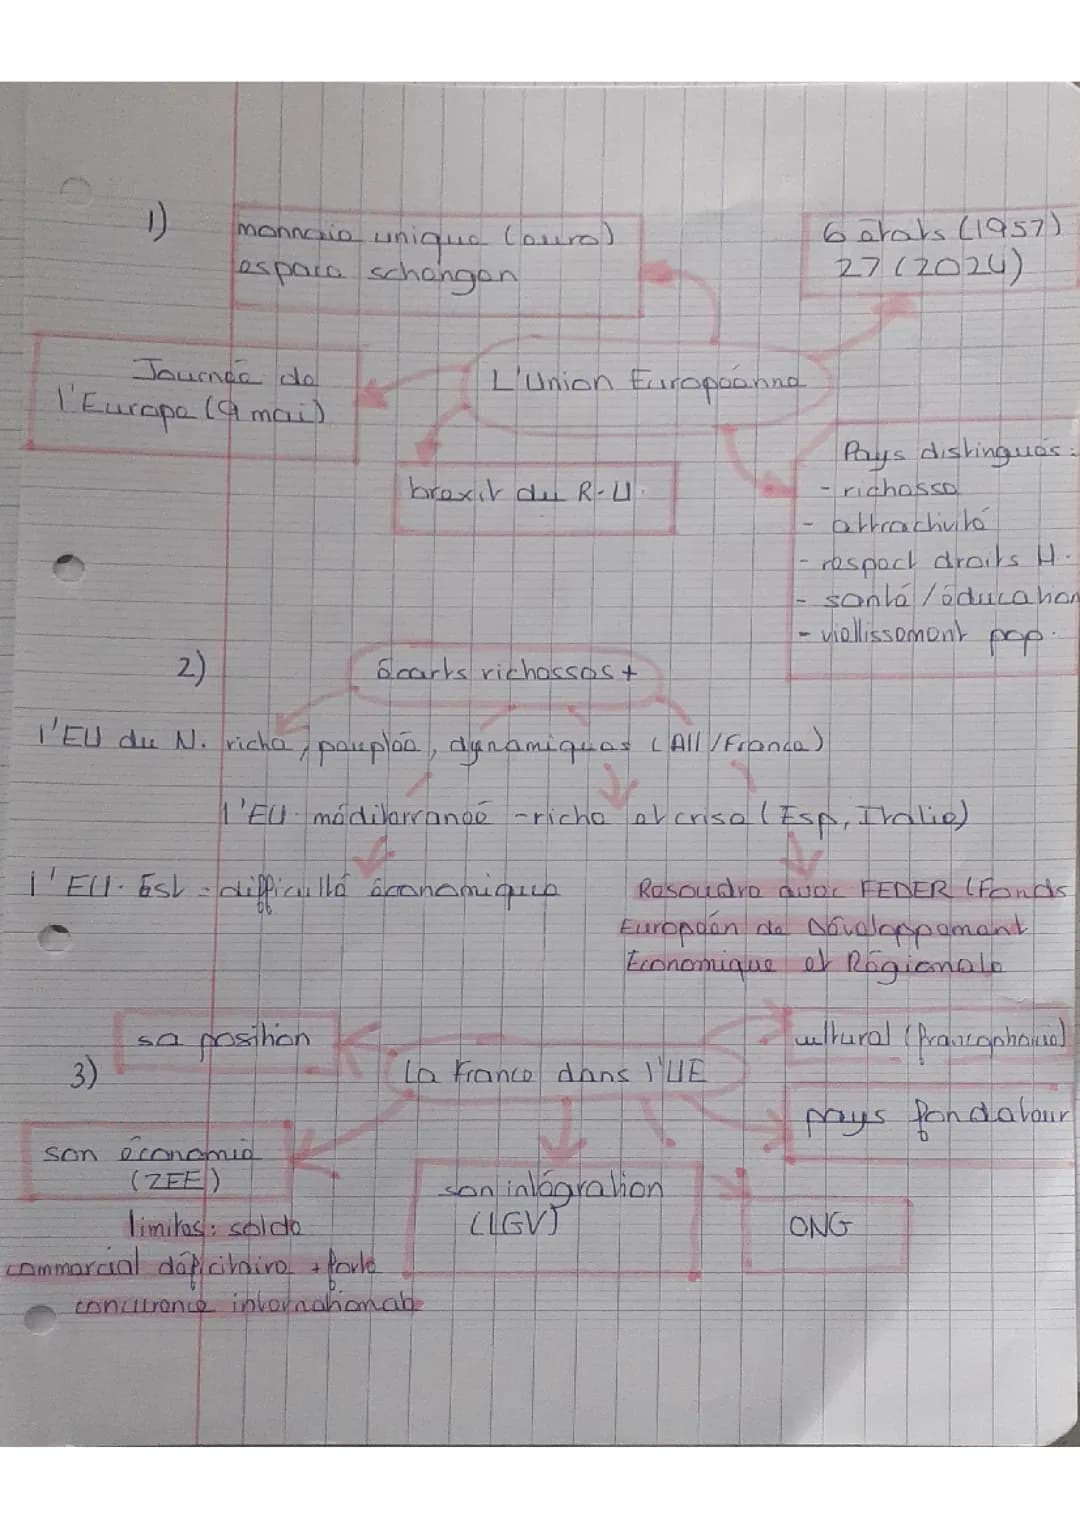 1)
monnaie unique (euro)
espace schengen
6 états (1957)
27 (2024)
Journée de
l'Europe (9 mai)
L'Union Européenne
brexit du R-U.
Pays distingués :
- richesse
- attractivité
- respect droits H.
- santé / éducation
- viellissement pop.
2)
Écarts richesses +
l'EU du N. riche, peuplée, dynamiques (All/France)
l'EU méditerranée - riche et crise (Esp, Italie)
l'EU. Est - difficulté économique
Resoudre avec FEDER (Fonds
Européen de Développement
Economique et Régionale
3)
sa position
La France dans l'UE
culturel (francophonie)
pays fondateur
son économie
(ZEE)
limites : solde
commercial déficitaire + forte
concurrence internationale
son intégration
(LGV)
ONG